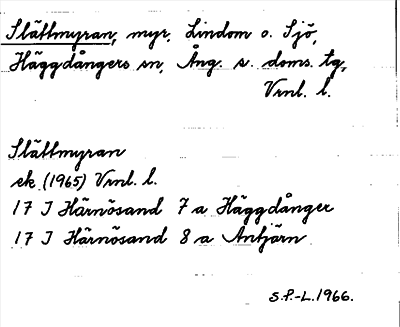 Slåttmyran, myr, Lindom o. Sjö,
Häggdångers sn, Ång. s. doms. tg,
Vrnl. l.
Slåttmyran
ek (1965) Vrnl. l.
17 J Härnösand 7 a Häggdånger
17 J Härnösand 8 a Antjärn
S.P.-L. 1966.